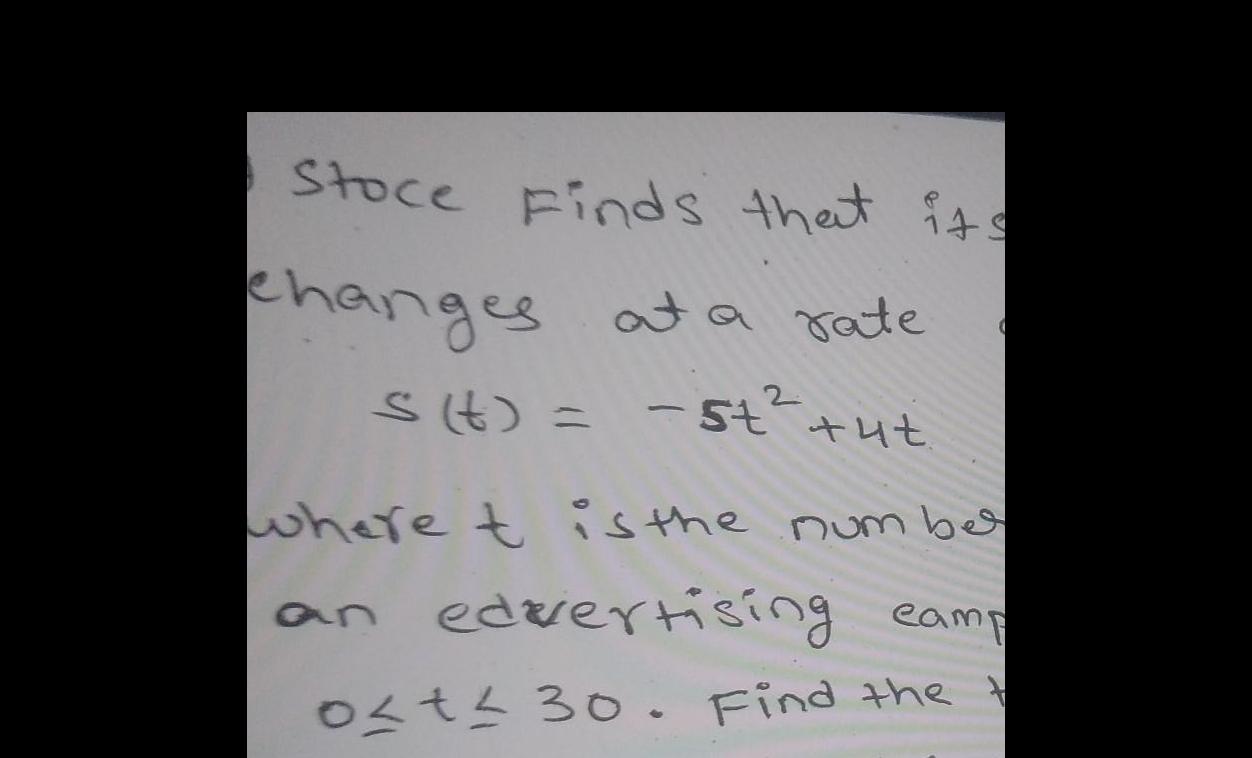 Stoce Finds that its
changes at a rate
s(t) = -5t² +4t
where t is the number
an edvertising camp
0≤t≤ 30. Find the t